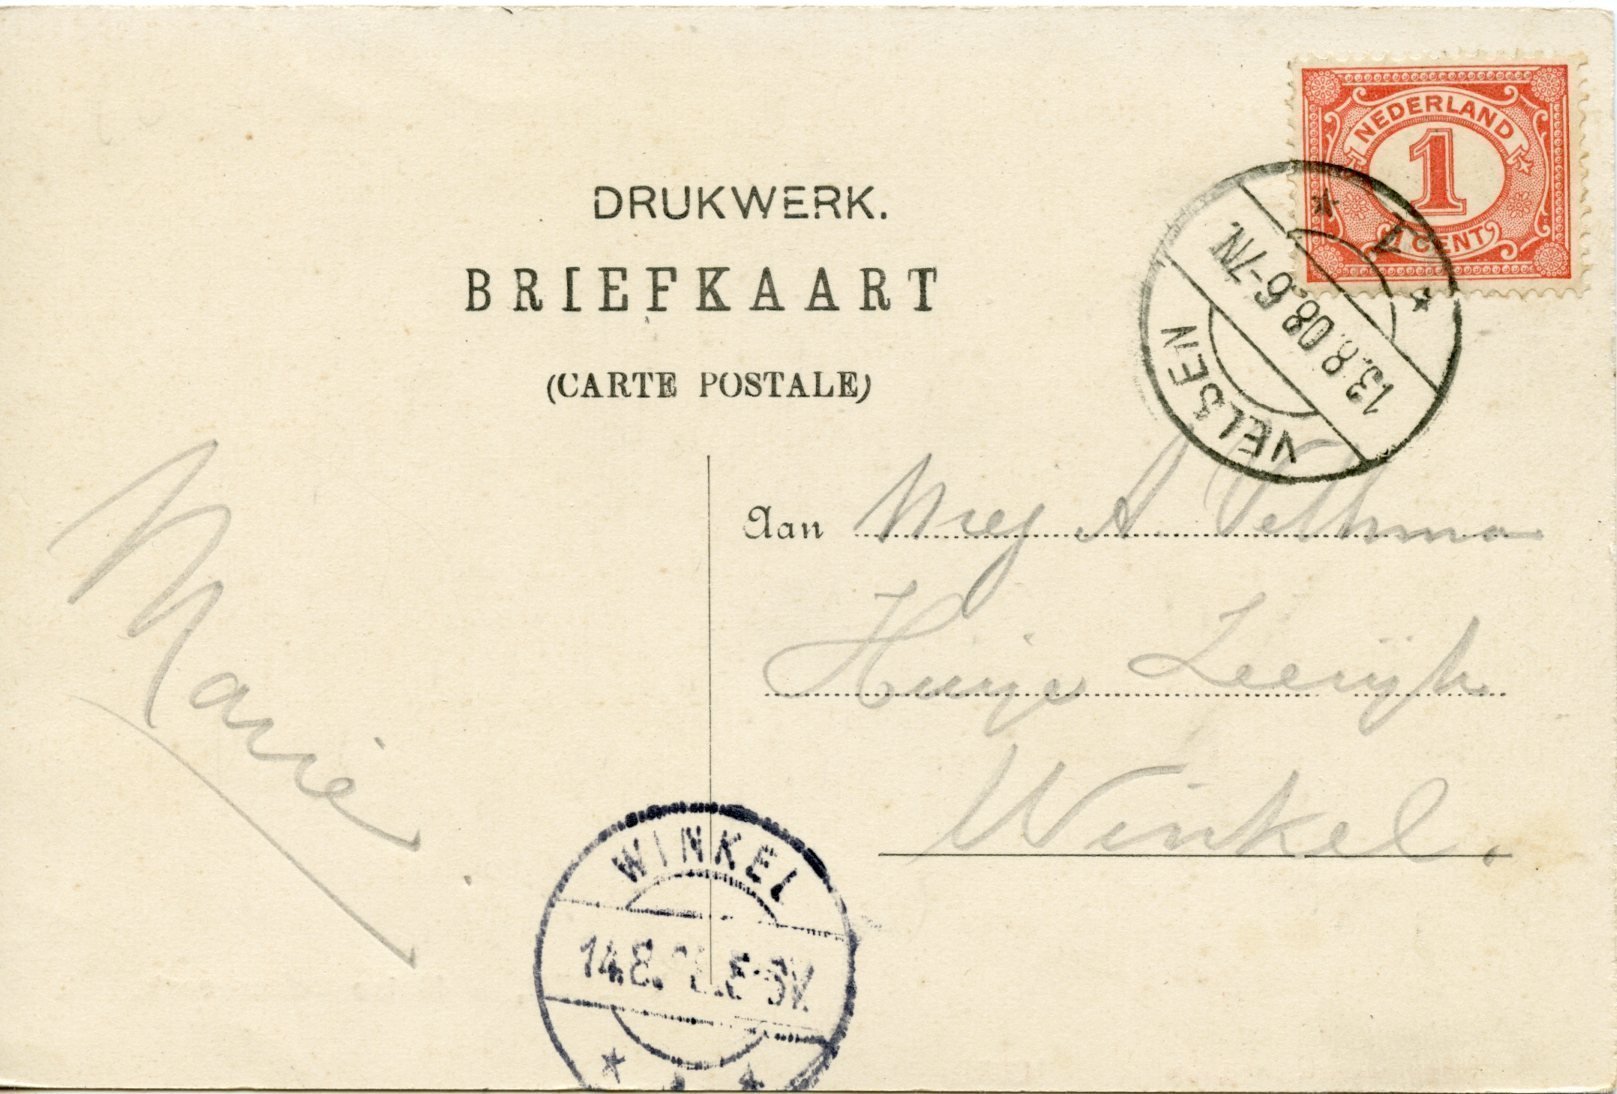 DRUKWERK.
BRIEFKAART
(CARTE POSTALE)
NEDERLAND
1
1 CENT
VELSEN
13.8.08.6-7N
Aan Mej A Velthma
Huize Leerijk
Winkel.
Marie
WINKEL
14.8. 5-6V